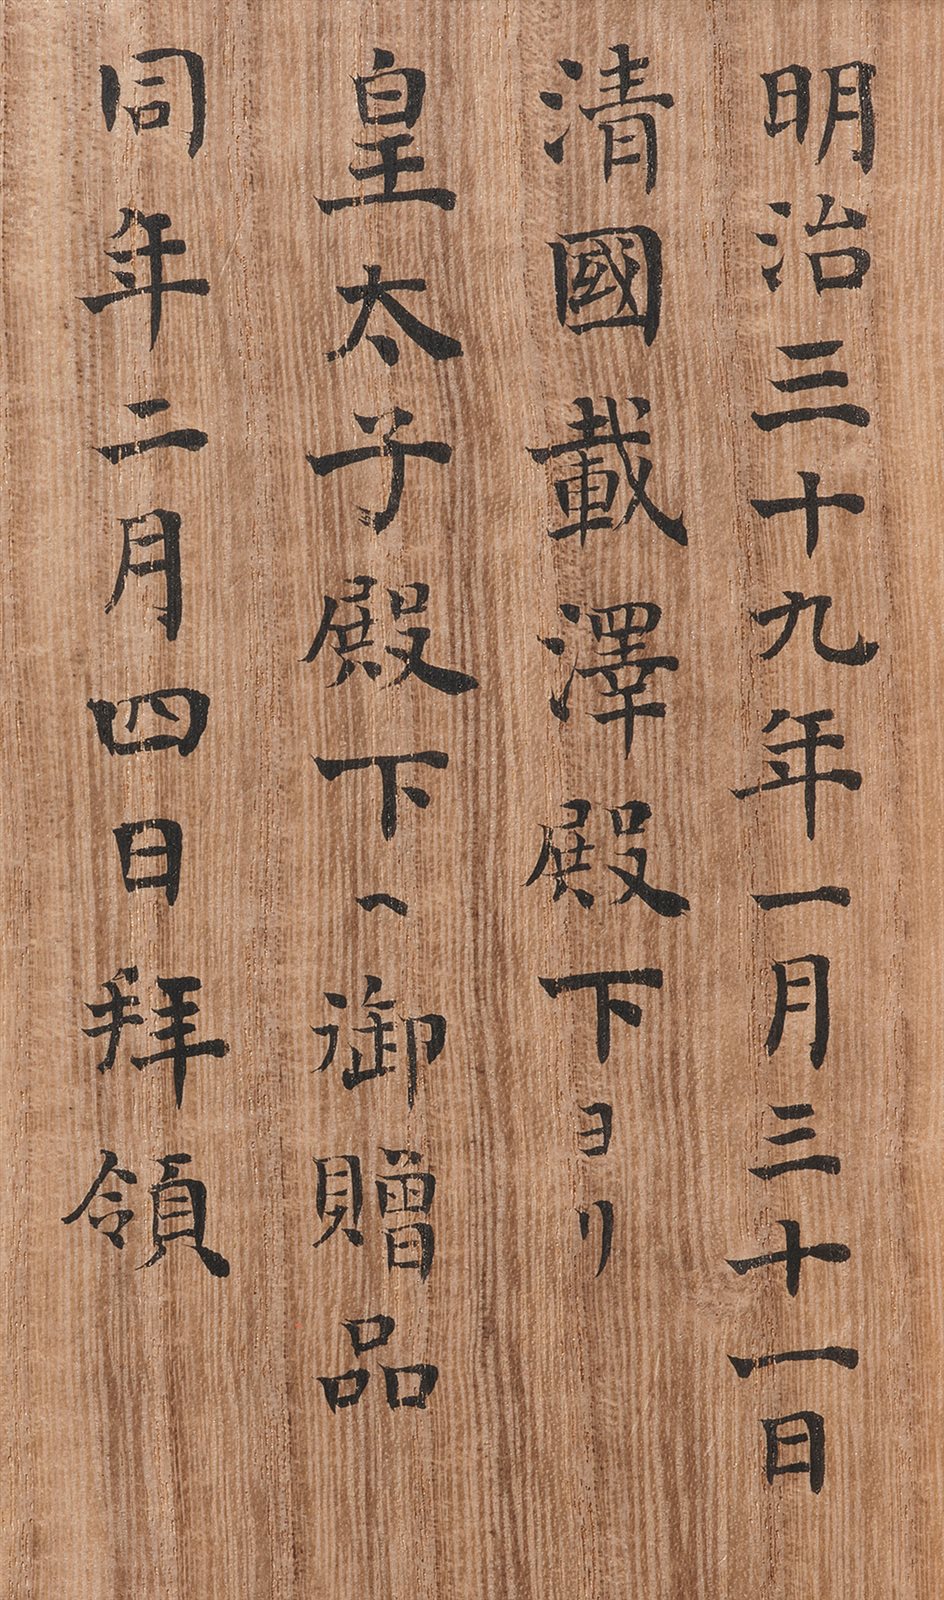 明治三十九年一月三十一日
清國載澤殿下ヨリ
皇太子殿下ヘ御贈品
同年二月四日拜領